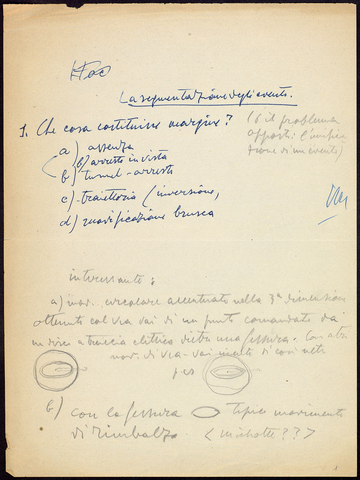 La segmentazione degli eventi.
1. Che cosa costituisce margine? (o il problema
opposto: l'unifica
zione di un evento)
a) assenza
b) arresto in vista
b) tunnel - arresti
c) - traiettoria (inversione,
d) modificazione brusca
interessante:
a) mov. circolare accentuato nella 3ª dimensione
ottenuto col via vai di un punto comandato da
un disco a traccia elittica dietro una fessura. Con altri
mov. di via-vai
b) con la fessura tipico movimento
di rimbalzo. < Michotte ?? >